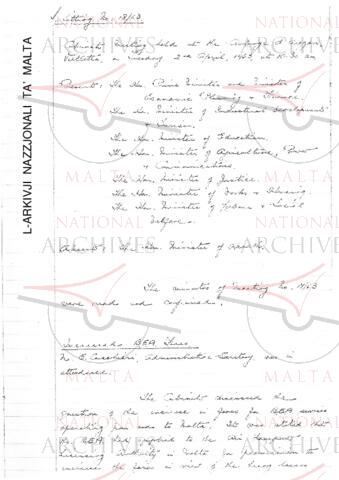 Meeting No. 18/63
Cabinet Meeting held at the Auberge d'Aragon,
Valletta, on Tuesday 2nd April, 1963 at 10.30 am
Present: The Hon. Prime Minister and Minister of
Economic Planning & Finance
The Hon. Minister of Industrial Development
& Tourism
The Hon. Minister of Education
The Hon. Minister of Agriculture, Power
& Communications
The Hon. Minister of Justice
The Hon. Minister of Works & Housing
The Hon. Minister of Labour & Social
Welfare
Absent: The Hon. Minister of Health
The minutes of meeting No. 17/63
were read and confirmed.
Increase in BEA Fares
Mr E. administrative Secretary was in
attendance.
The Cabinet discussed the
question of the increase in fares for BEA services
operating from and to Malta. It was stated that
the BEA had applied to the Air Transport
Licensing Authority in Malta for permission to
increase the fares in view of the heavy losses
L-ARKIVJI NAZZJONALI TA' MALTA
NATIONAL
ARCHIVES
MALTA